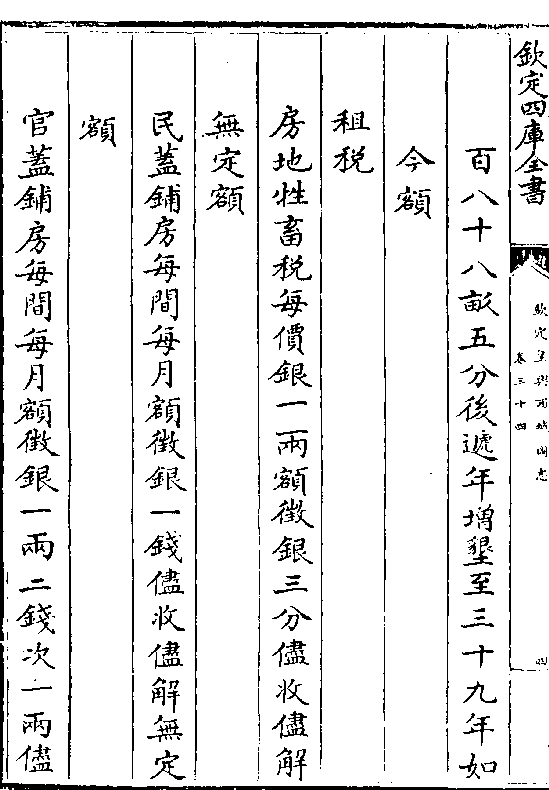 欽定四庫全書
欽定皇輿西域圖志
卷三十四
四
百八十八畝五分後遞年增墾至三十九年如
今額
租税
房地牲畜税每價銀一兩額徴銀三分儘收儘解
無定額
民蓋鋪房每間每月額徴銀一錢儘收儘解無定
額
官蓋鋪房每間每月額徴銀一兩二錢次一兩儘